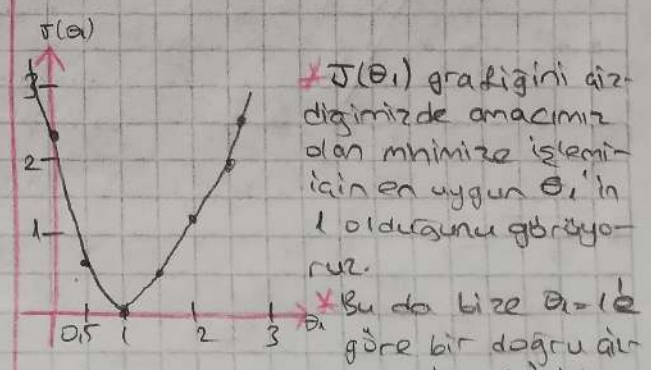 J(θ1)
3
2
1
0,5 1 2 3 θ1
* J(θ1) grafiğini çiz-
digimizde amacımız
olan mhimize işlemi-
için en uygun θ1'in
1 oldugunu görüyo-
ruz.
* Bu da bize θ1=1'e
göre bir doğru çiz-